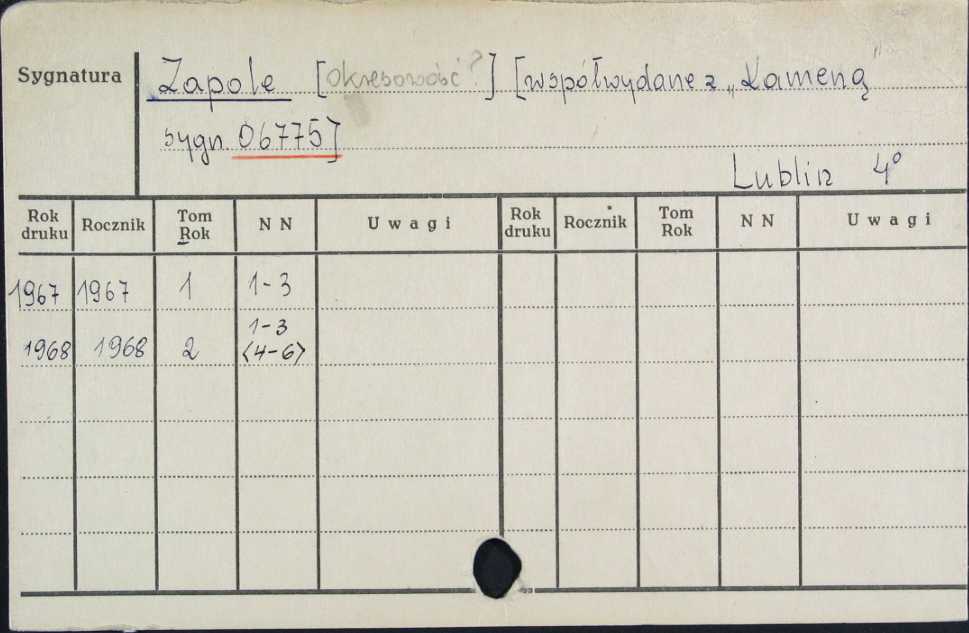 Sygnatura Zapole [okresowość?] [współwydane z „Kameną”
sygn. 06775]
Lublin 4°
Rok druku Rocznik Tom Rok N N Uwagi Rok druku Rocznik Tom Rok N N Uwagi
1967 1967 1 1-3
1968 1968 2 1-3
(4-6)